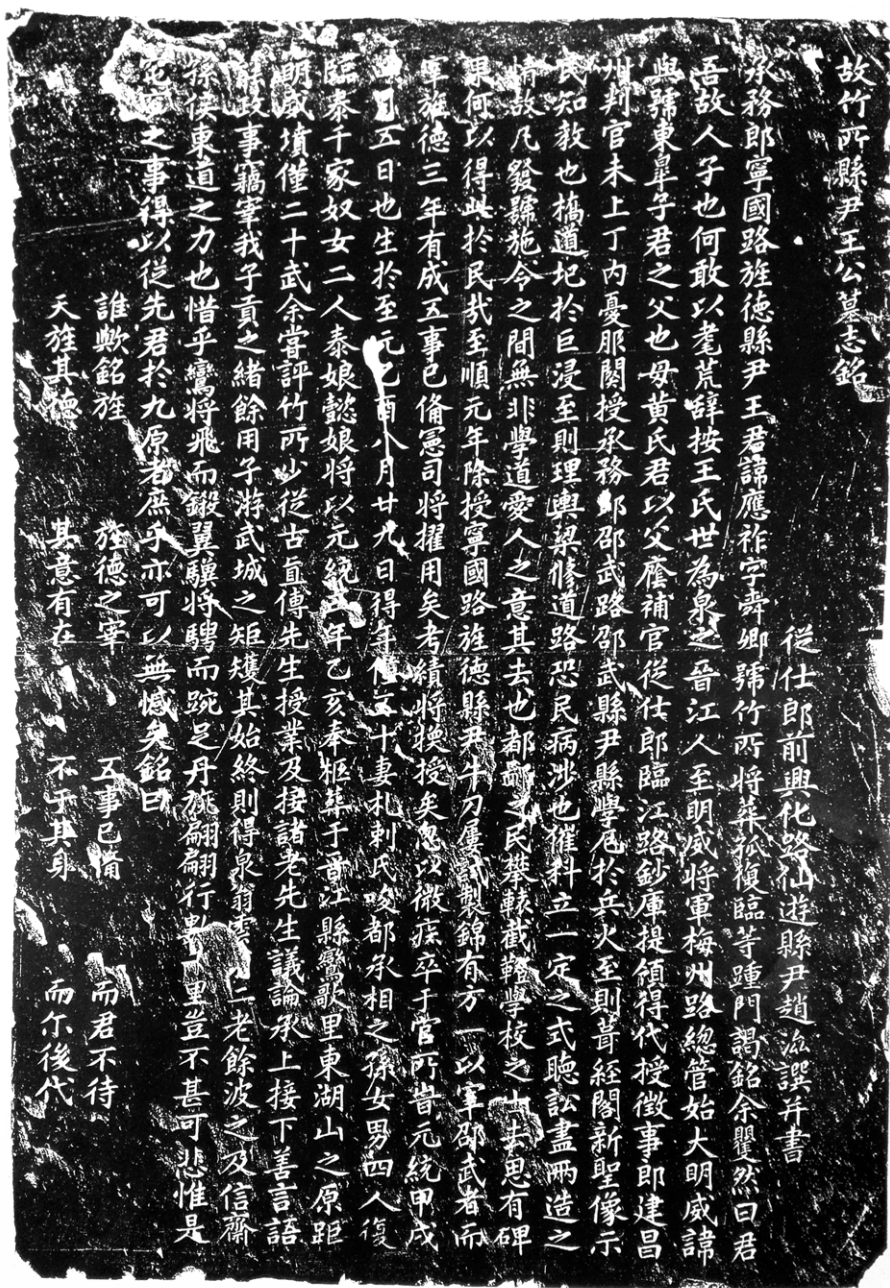 故竹所縣尹王公墓志銘
從仕郎前興化路仙遊縣尹趙 譔并書
承務郎寧國路旌德縣尹王君諱應祚字舜卿號竹所將葬孤復臨等踵門謁銘余瞿然曰君
吾故人子也何敢以耄荒辞按王氏世為泉之晉江人至明威将軍梅州路總管始大明威諱
與號東皐子君之父也母黄氏君以父廕補官從仕郎臨江路鈔庫提領得代授徵事郎建昌
州判官未上丁内憂服闋授承務郎邵武路邵武縣尹縣學厄於兵火至則葺經閣新聖像示
民知教也橋道圮於巨浸至則理輿梁修道路恐民病涉也催科立一定之式聴訟盡兩造之
情故凡發號施令之間無非學道愛人之意其去也都鄙之民攀轅截鞹學校之士去思有碑
果何以得此於民㢤至順元年除授寧國路旌德縣尹牛刀屢試製錦有方一以宰邵武者而
宰旌德三年有成五事已俻憲司将擢用矣考績将换授矣忽以微疾卒于官所旹元統甲戌
月五日也生於至元乙酉八月廿九日得年僅五十妻札剌氏唆都丞相之孫女男四人復
臨泰千家奴女二人泰娘懿娘将以元統三年乙亥奉柩葬于晉江縣鸞歌里東湖山之原距
明威墳僅二十武余甞評竹所少從古直傳先生授業及接諸老先生議論承上接下善言語
能政事竊宰我子貢之緒餘用子游武城之矩矱其始終則得泉翁雲 二老餘波之及信齋
孫侯東道之力也惜乎鸞将飛而鎩翼驥将騁而踠足丹旐翩翩行數 里豈不甚可悲惟是
窀穸之事得以從先君於九原者庶乎亦可以無憾矣銘曰
誰歟銘旌 旌德之宰 五事已俻 而君不待
天旌其德 其意有在 不于其身 而尒後代